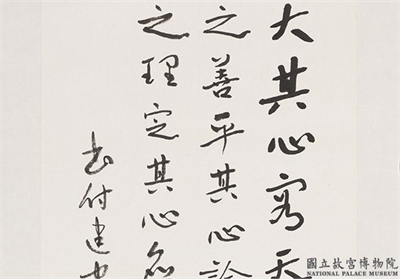 大其心容天
之善平其心論
之理定其心應
書付建
國立故宮博物院
NATIONAL PALACE MUSEUM